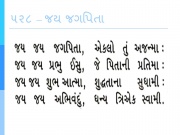 ૫૨૮ – જય જગપિતા
જય જય જગપિતા, એકલો તું અજન્મા :
જય જય પ્રભુ ઈસુ, જે પિતાની પ્રતિમા :
જય જય શુભ આત્મા, શુદ્ધતાના સુધામી :
જય જય અભિવંદું, ધન્ય ત્રિએક સ્વામી.